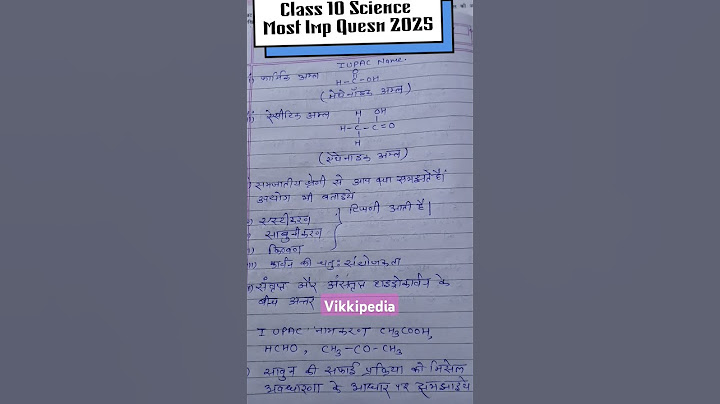 Class 10 Science
Most Imp Quesn 2025
IUPAC Name.
फार्मिक अम्ल
O
H-C-OH
(मेथेनॉइक अम्ल)
ऐसीटिक अम्ल
H OH
H-C-C=O
H
(ऐथेनॉइक अम्ल)
समजातीय श्रेणी से आप क्या समझते है।
उपयोग भी बताइये
एस्टीकरण
साबुनीकरण
टिप्पणी आती है।
किण्वन
कार्बन की चतु: संयोजकता
संतृप्त और असंतृप्त हाइड्रोकार्बन के
बीच अन्तर
Vikkipedia
IUPAC नामकरण CH3COOH,
HCHO, CH3-CO-CH3
साबुन की सफाई प्रक्रिया को मिसेल
अवधारणा के आधार पर समझाइये